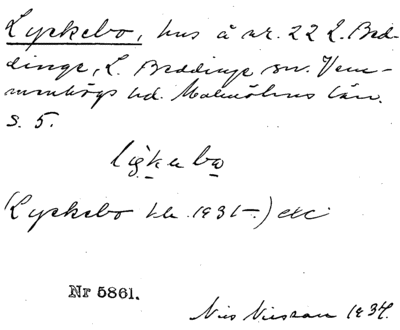 Lyckebo, hus å nr. 22 L. Bed-
dinge, L. Beddinge sn. Vem-
menhögs hd. Malmöhus län.
S. 5.
(Lyckebo 1931-) etc
Nr 5861.
Nils Nilsson 1934.